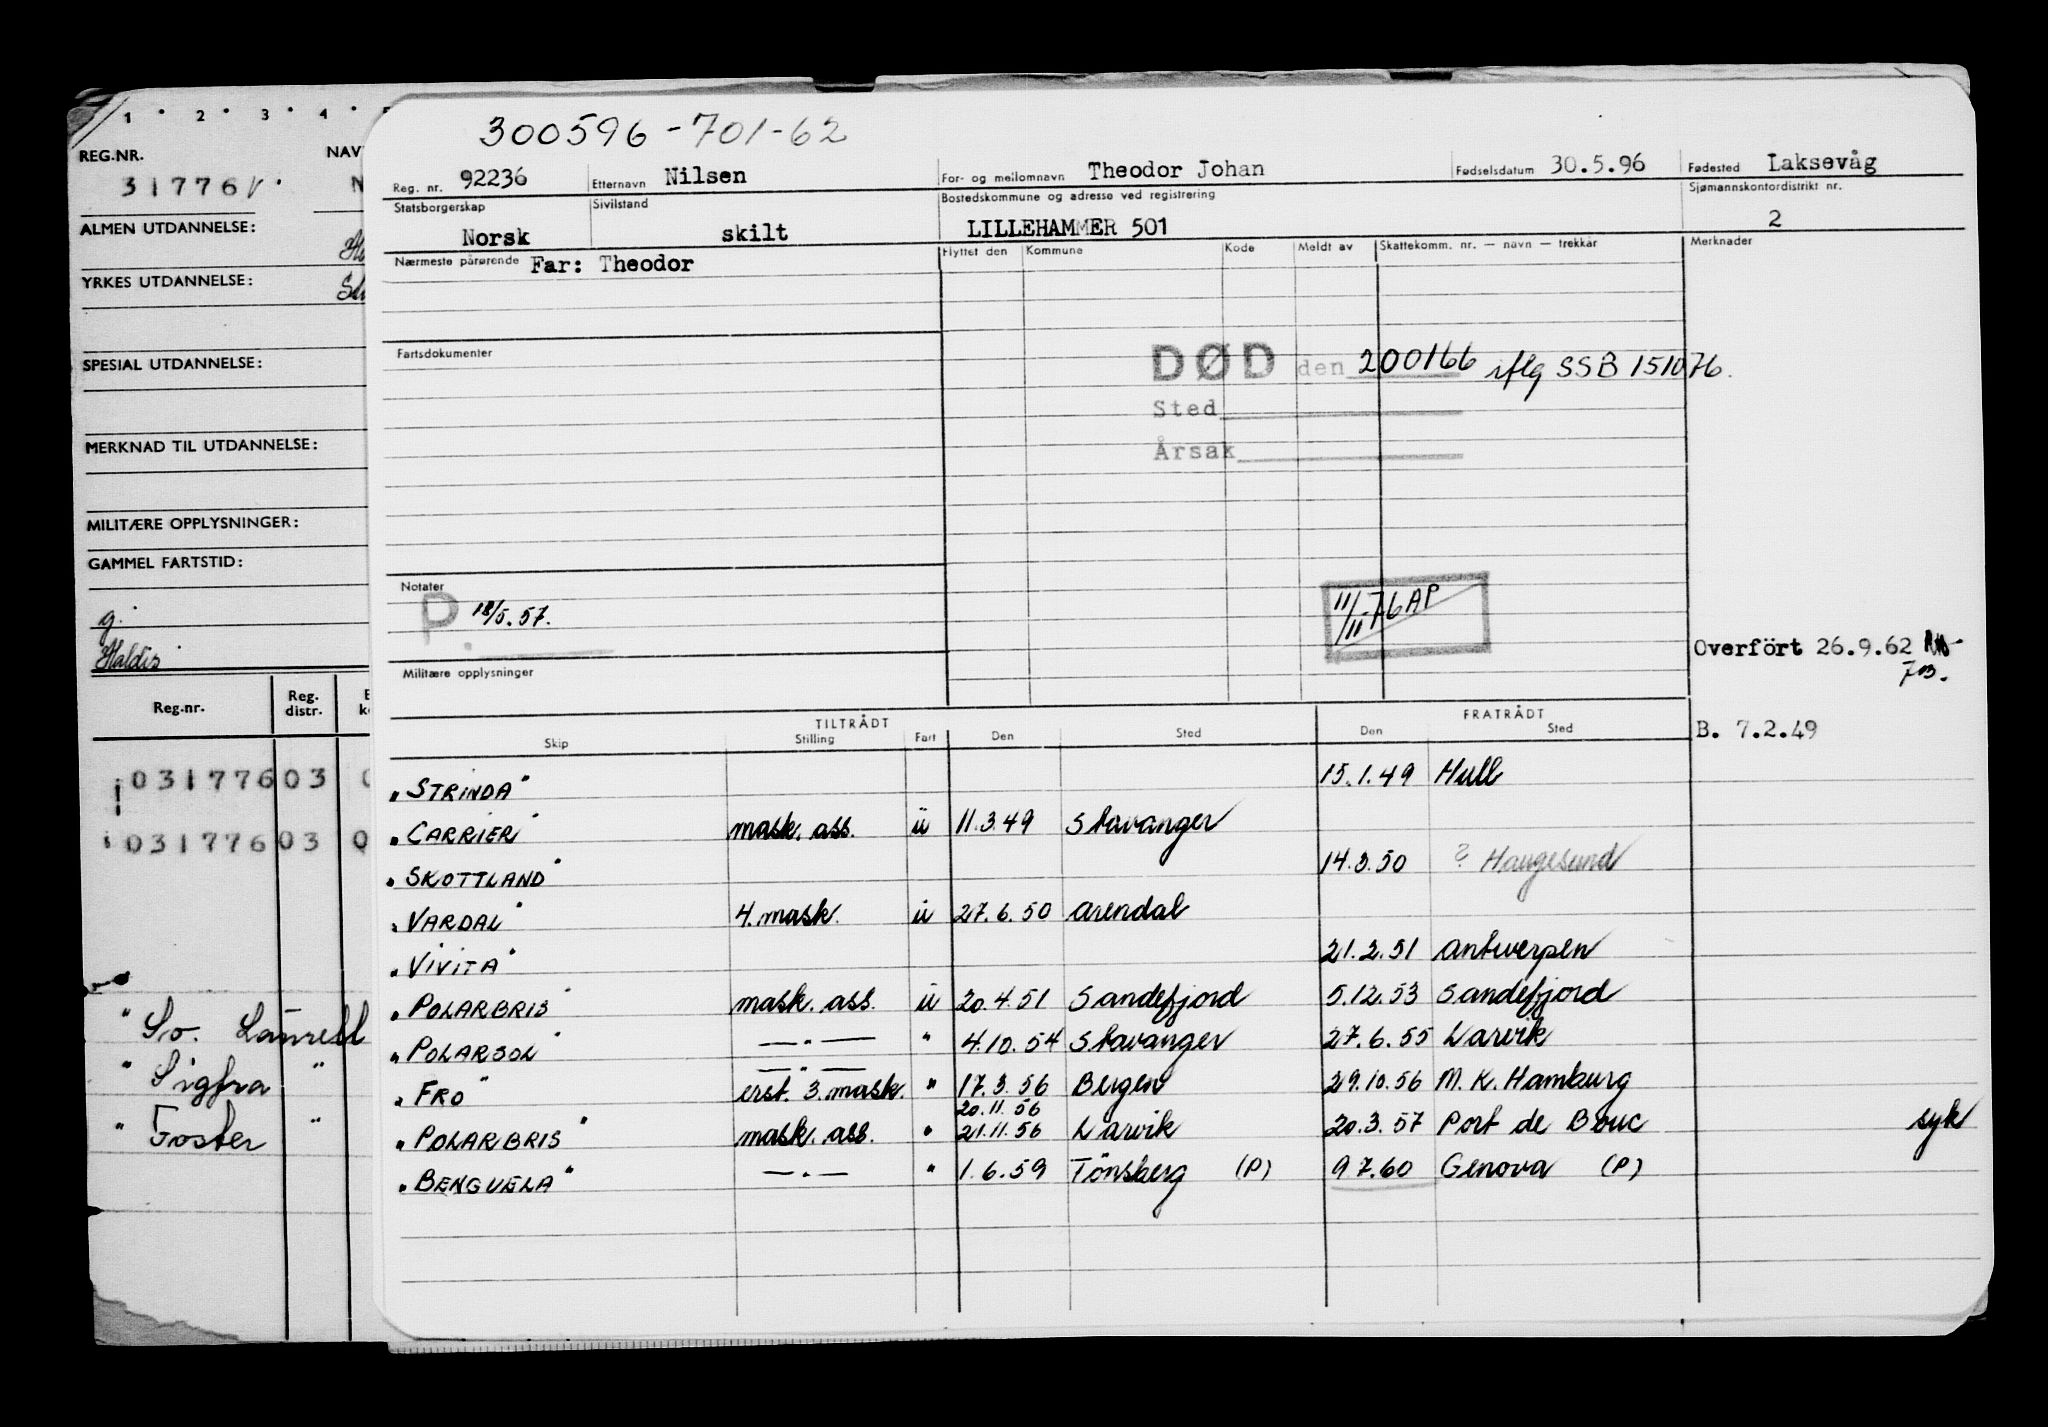 1 · 2 · 3 · 4 ·
REG.NR. NAV
31776
ALMEN UTDANNELSE:
YRKES UTDANNELSE:
SPESIAL UTDANNELSE:
MERKNAD TIL UTDANNELSE:
MILITÆRE OPPLYSNINGER:
GAMMEL FARTSTID:
g.
Haldis
Reg.nr. Reg. distr.
03177603
03177603 0
" So. Laurell
" Sigfra "
" Foster "
300596-701-62
Reg. nr. 92236 Etternavn Nilsen For- og mellomnavn Theodor Johan Fødselsdatum 30.5.96 Fødested Laksevåg
Statsborgerskap Sivilstand Bostedskommune og adresse ved registrering Sjømannskontordistrikt nr.
Norsk skilt LILLEHAMMER 501 2
Nærmeste pårørende Far: Theodor Flyttet den Kommune Kode Meldt av Skattekomm. nr. — navn — trekkår Merknader
Fartsdokumenter
DØD den 200166 iflg SSB 151076.
Sted
Årsak
Notater
P. 18/5.57.
11/11-76 AP
Militære opplysninger
Overfört 26.9.62
B. 7.2.49
TILTRÅDT FRATRÅDT
Skip Stilling Fart Den Sted Den Sted
"STRINDA" 15.1.49 Hull
"CARRIER" mask. ass. ü 11.3.49 Stavanger
"SKOTTLAND" 14.3.50 ? Haugesund
"VARDAL" 4.mask. ü 27.6.50 Arendal
"VIVITA" 21.2.51 Antwerpen
"POLARBRIS" mask. ass. ü 20.4.51 Sandefjord 5.12.53 Sandefjord
"POLARSOL" —„— " 4.10.54 Stavanger 27.6.55 Larvik
—„—
"FRO" erst. 3.mask. " 17.3.56 Bergen 29.10.56 M.K. Hamburg
20.11.56
"POLARBRIS" mask. ass. " 21.11.56 Larvik 20.3.57 Port de Bouc syk
"BENGUELA" —„— " 1.6.59 Tönsberg (P) 9.7.60 Genova (P)